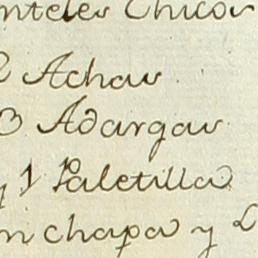 nteles Chicos
2 Achas
3 Adargas
y 1 Paletilla
n chapa y